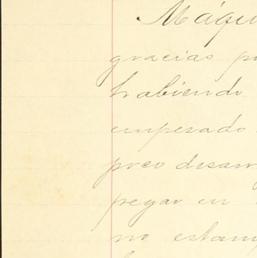 Máqu
gracias p
habiendo
empesado
poco desar
pegar en
no estam